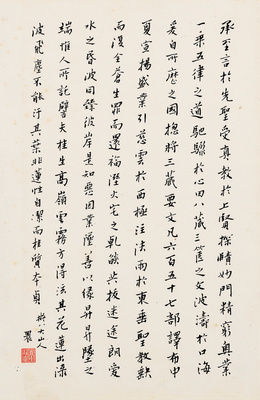 承至言於先聖受真教於上賢探賾妙門精窮奧業
一乘五律之道馳驟於心田八藏三篋之文波濤於口海
爰自所歷之國總將三藏要文凡六百五十七部譯布中
夏宣揚盛業引慈雲於西極注法雨於東垂聖教缺
而復全蒼生罪而還福溼火宅之乾燄共拔迷途朗愛
水之昏波同臻彼岸是知惡因業墜善以緣昇昇墜之
端惟人所託譬夫桂生高嶺雲霧方得泫其花蓮出淥
波飛塵不能汙其葉非蓮性自潔而桂質本貞